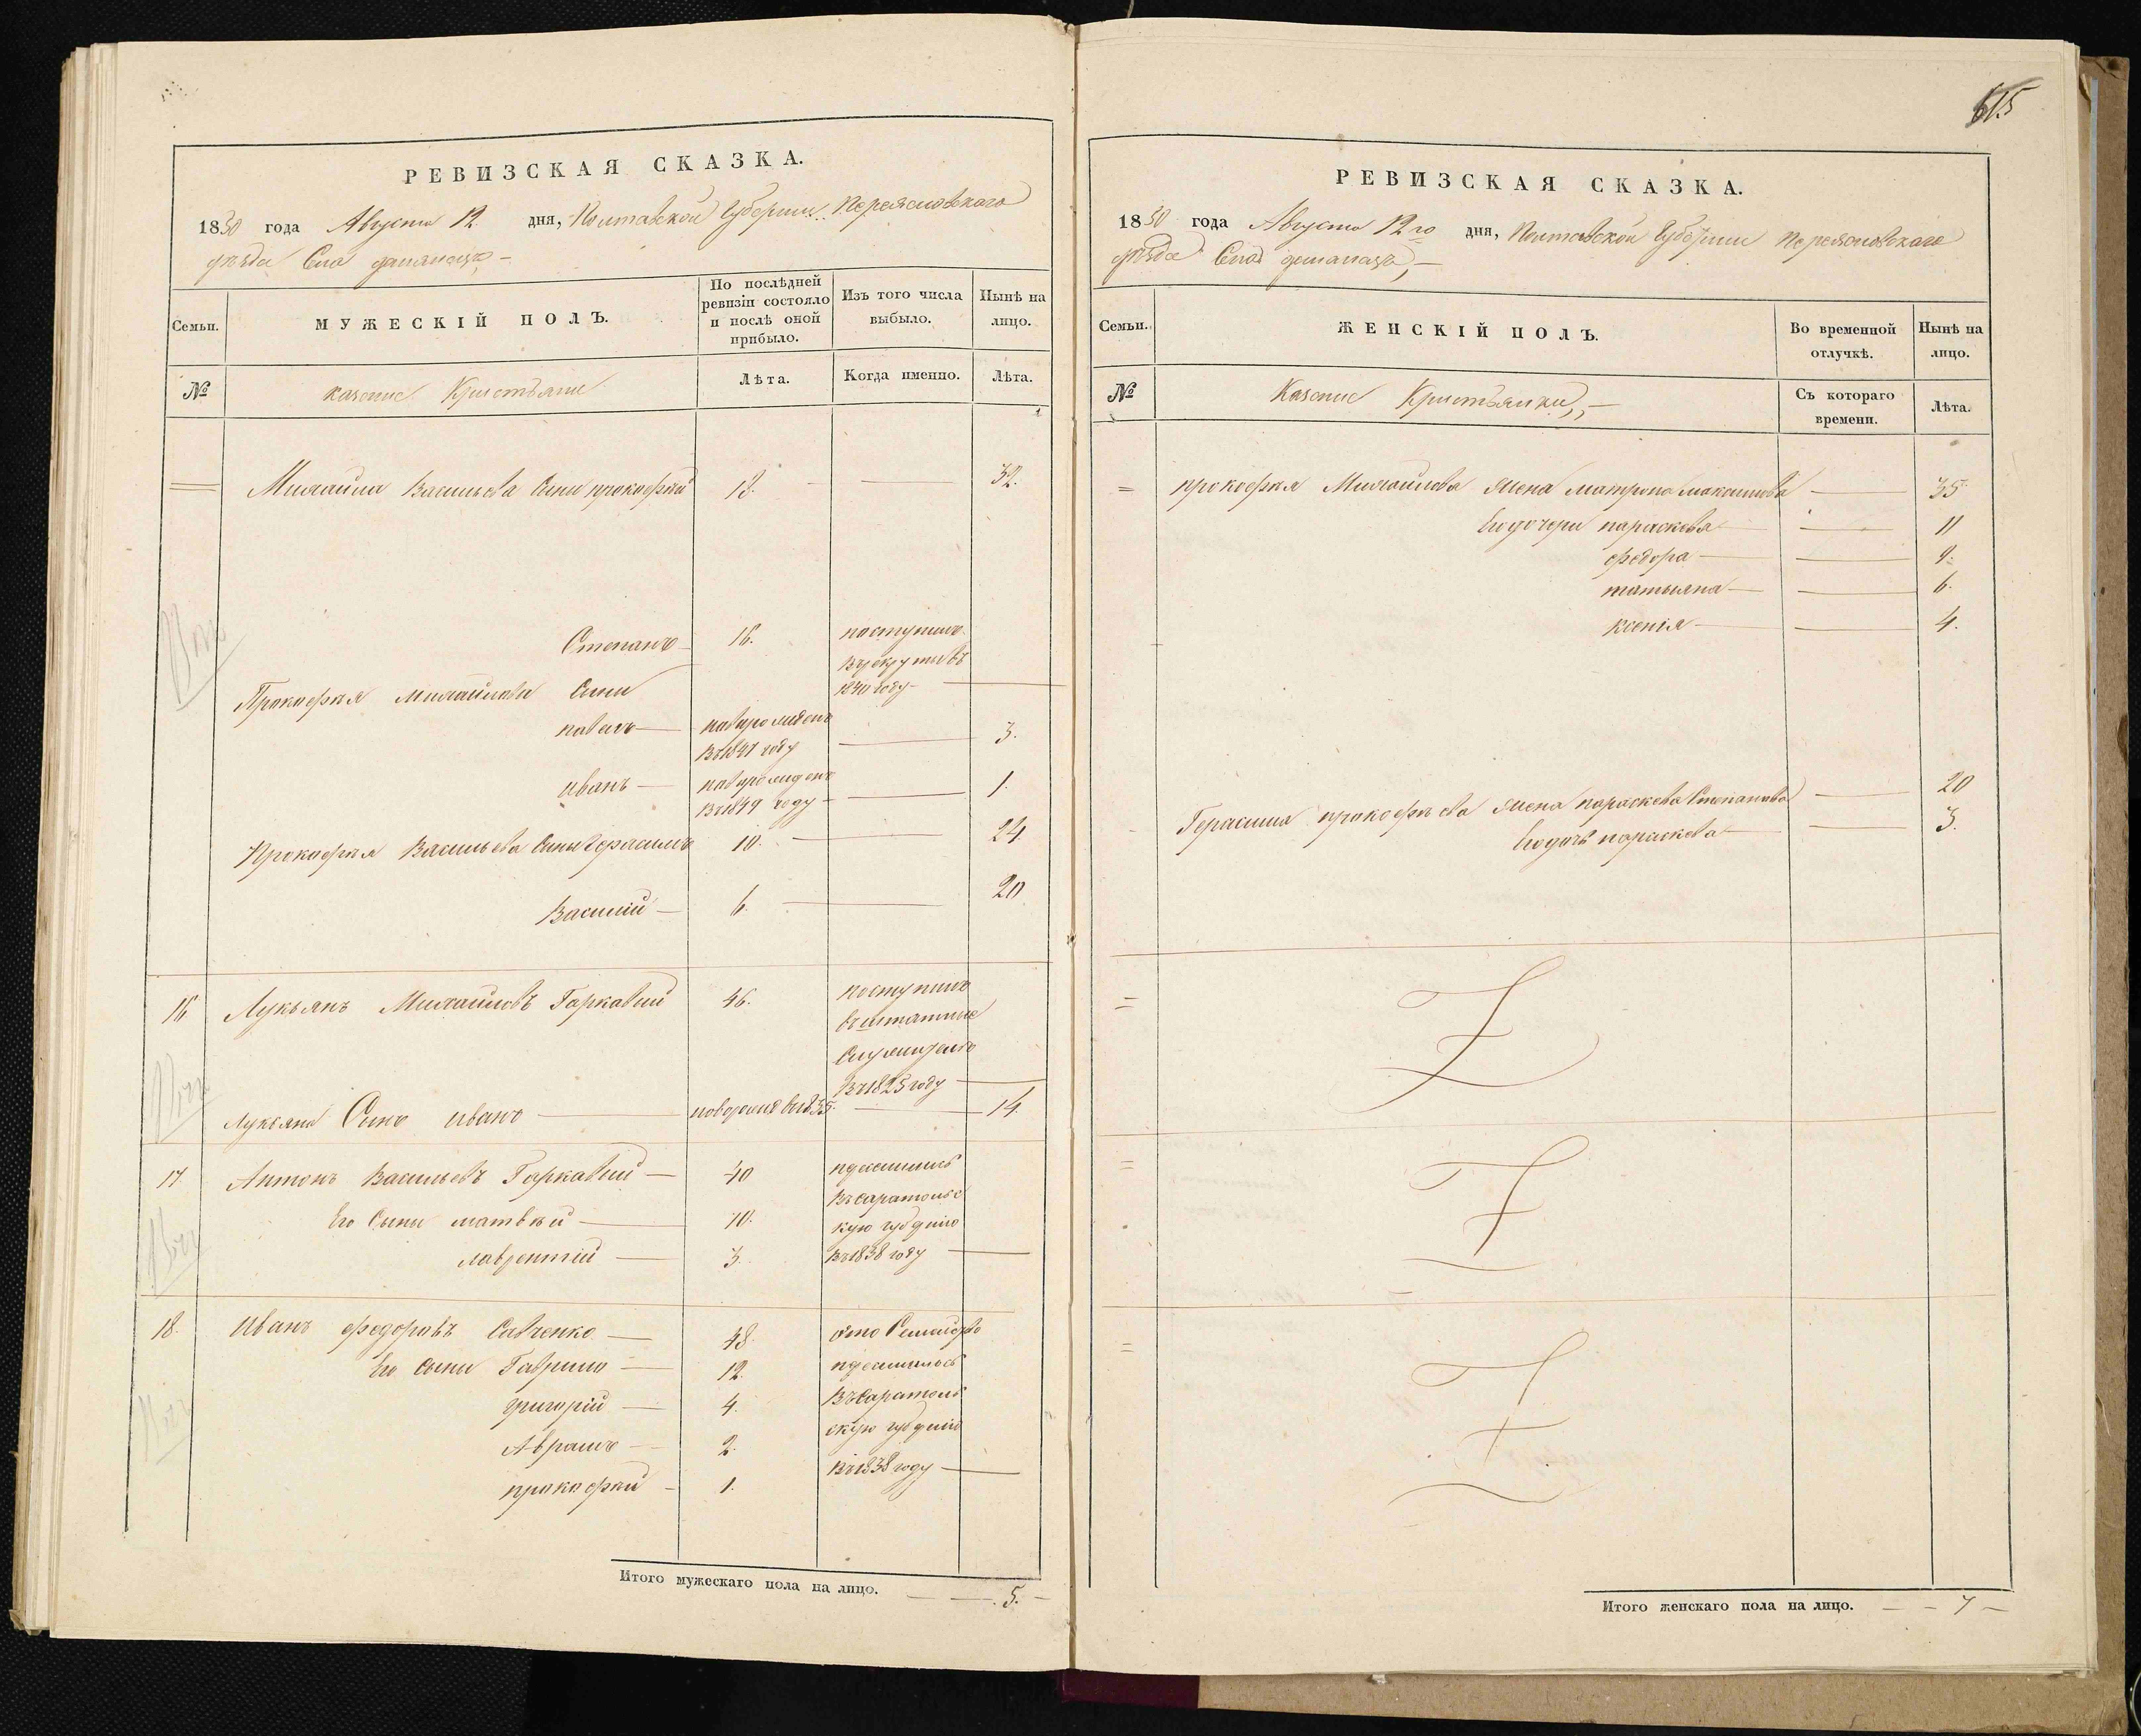 РЕВИЗСКАЯ СКАЗКА.
1850 года Августа 12 дня, Полтавской Губернии Переясловского
уезда Села
Семьи. МУЖЕСКІЙ ПОЛЪ. По послѣдней ревизіи состояло и послѣ оной прибыло. Изъ того числа выбыло. Нынѣ на лицо.
№ казенные Кристьяне Лѣта. Когда именно. Лѣта.
Михайла Васильева Сыны прокофий 18. 32.
Степанъ 16. поступилъ
врекруты въ
1840 году
Прокофия михайлова Сыны
павелъ новорожденъ 3.
въ 1847 году
иванъ новорожденъ 1.
въ 1849 году
Прокофия Васильева Сыны Герасимъ 10. 24
Василий 6. 20
16 Лукьянъ Михайловъ Гаркавий 46. поступилъ
въ штатные
въ 1825 году
лукьяна Сынъ иванъ новорожд въ 1835. 14
17 Антонъ Васильевъ Гаркавий 40
Его Сыны матвѣй 10. въ саратовс
кую губернію
лаврентий 3. въ 1838 году
18. Иванъ федоровъ Савченко 48.
Его сыны Гаврило 12.
григорий 4. въ саратовс
Аврамъ 2. скую губернію
прокофий 1. въ 1838 году
Итого мужескаго пола на лицо. 5.
615
РЕВИЗСКАЯ СКАЗКА.
1850 года Августа 12го дня, Полтавской Губернии Переясловского
уезда Села
Семьи. ЖЕНСКІЙ ПОЛЪ. Во временной отлучкѣ. Нынѣ на лицо.
№ Казенные Кристьянки Съ котораго времени. Лѣта.
прокофия Михайлова жена матрона максимова 35
Его дочери параскева 11
федора 9.
татьяна 6.
ксения 4.
Герасима прокофьева жена параскева Степанова 20
Его дочь параскева 3.
Итого женскаго пола на лицо. 7